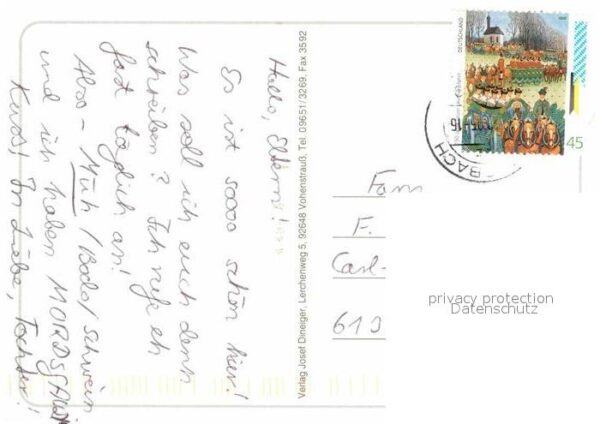 Hallo, Eltern!
Es ist soooo schön hier!
Was soll ich euch denn
schreiben? Ich rufe eh
fast täglich an!
Also - Müh/Bade/Schwein
und ich haben MORDSGAUDI
Kurz! In Liebe, Tochter!!
Verlag Josef Dineiger, Lerchenweg 5, 92648 Vohenstrauß, Tel. 09651/3269, Fax 3592
DEUTSCHLAND
45
BACH
Fam
F.
Carl-
610
privacy protection
Datenschutz